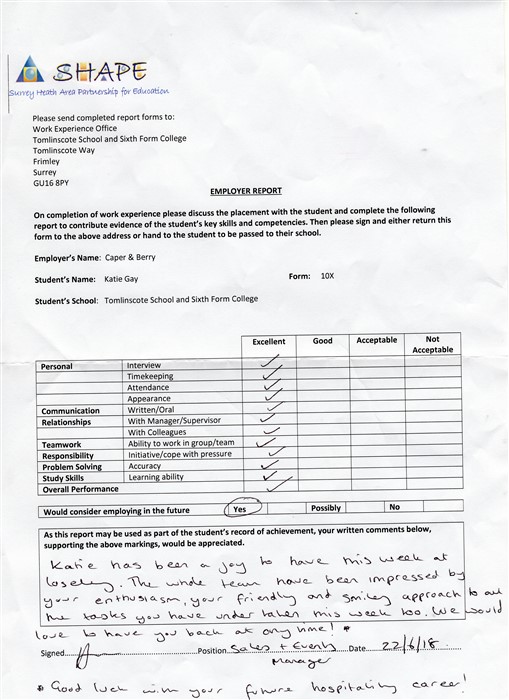 SHAPE
Surrey Heath Area Partnership for Education
Please send completed report forms to:
Work Experience Office
Tomlinscote School and Sixth Form College
Tomlinscote Way
Frimley
Surrey
GU16 8PY
EMPLOYER REPORT
On completion of work experience please discuss the placement with the student and complete the following
report to contribute evidence of the student's key skills and competencies. Then please sign and either return this
form to the above address or hand to the student to be passed to their school.
Employer's Name: Caper & Berry
Student's Name: Katie Gay Form: 10X
Student's School: Tomlinscote School and Sixth Form College
Excellent Good Acceptable Not Acceptable
Personal Interview
Timekeeping
Attendance
Appearance
Communication Written/Oral
Relationships With Manager/Supervisor
With Colleagues
Teamwork Ability to work in group/team
Responsibility Initiative/cope with pressure
Problem Solving Accuracy
Study Skills Learning ability
Overall Performance
Would consider employing in the future Yes Possibly No
As this report may be used as part of the student's record of achievement, your written comments below,
supporting the above markings, would be appreciated.
Katie has been a joy to have this week at
Loseley. The whole team have been impressed by
your enthusiasm, your friendly and smiley approach to all
the tasks you have undertaken this week too. We would
love to have you back at any time! *
Signed Position Sales + Events Date 22/6/18
Manager
* Good luck with your future hospitality career!